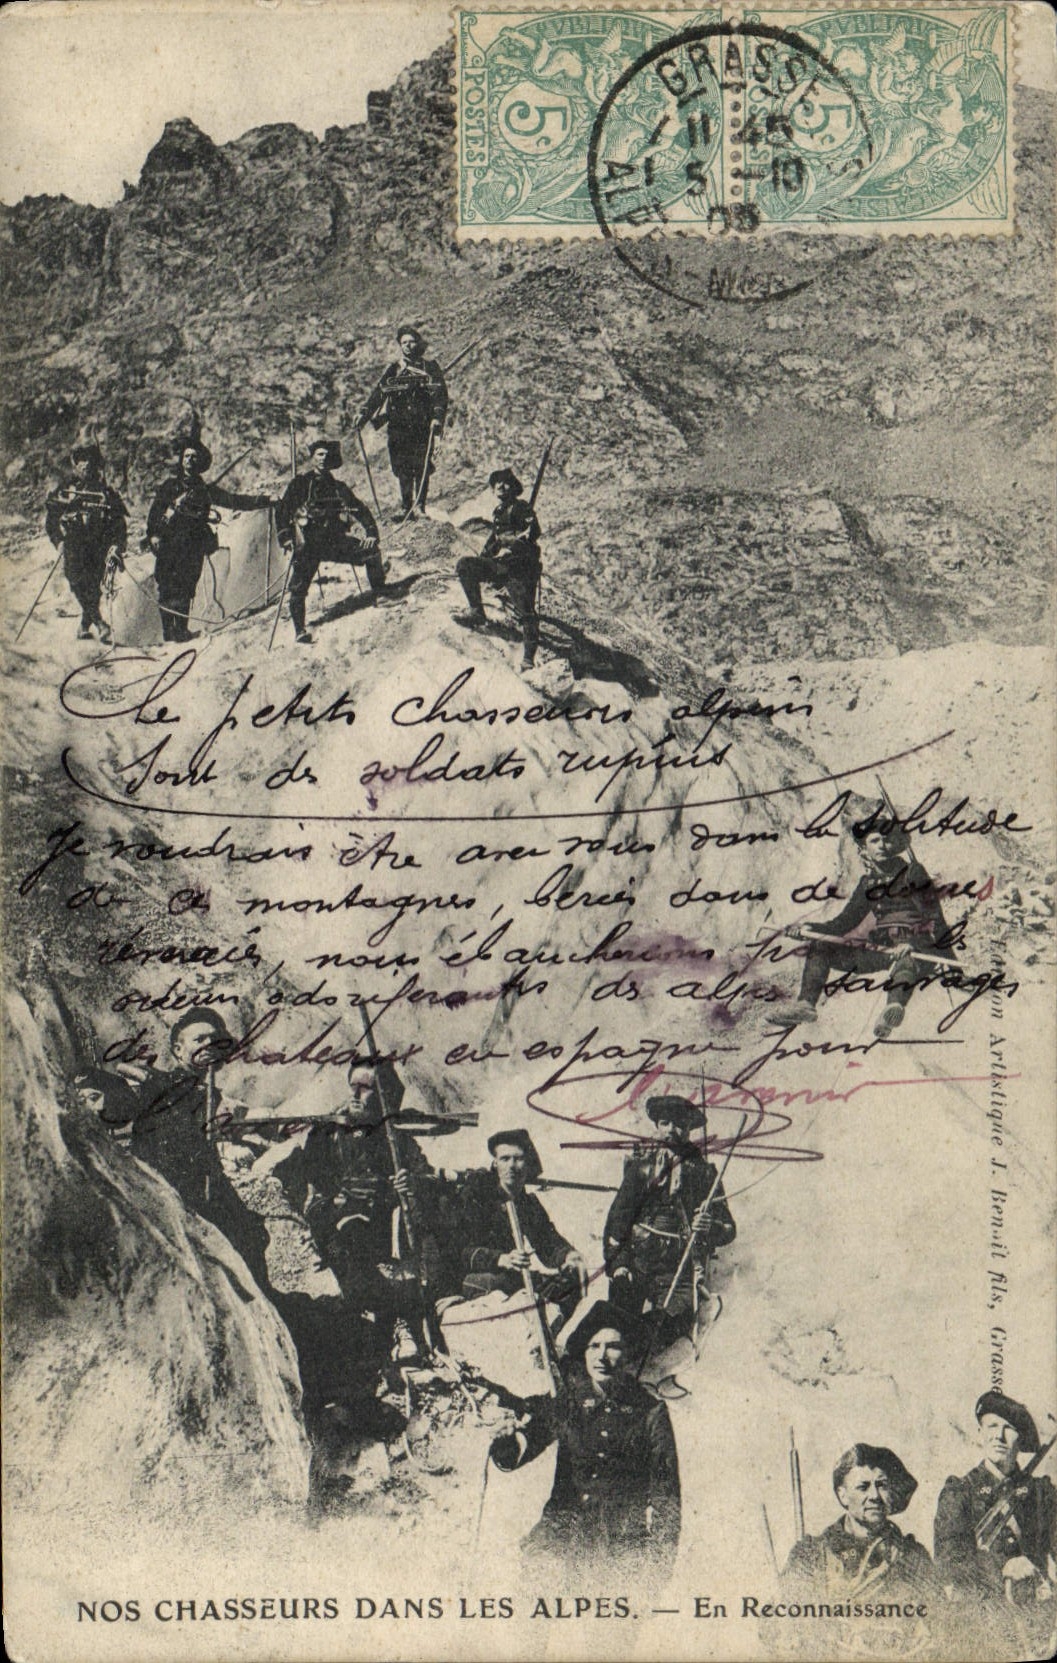 POSTES
5c
5c
GRASSE
11 45
5 -10
Le petits chasseurs alpins
sont des soldats rupins
Je voudrais être avec vous dans la solitude
de ces montagnes, bercés dans de douces
rêveries, nous ébaucherions parmi les
odeurs odoriferantes des alpes sauvages
des chateaux en espagne pour
l'avenir l'avenir
Edition Artistique J. Benoit fils, Grasse
NOS CHASSEURS DANS LES ALPES. — En Reconnaissance